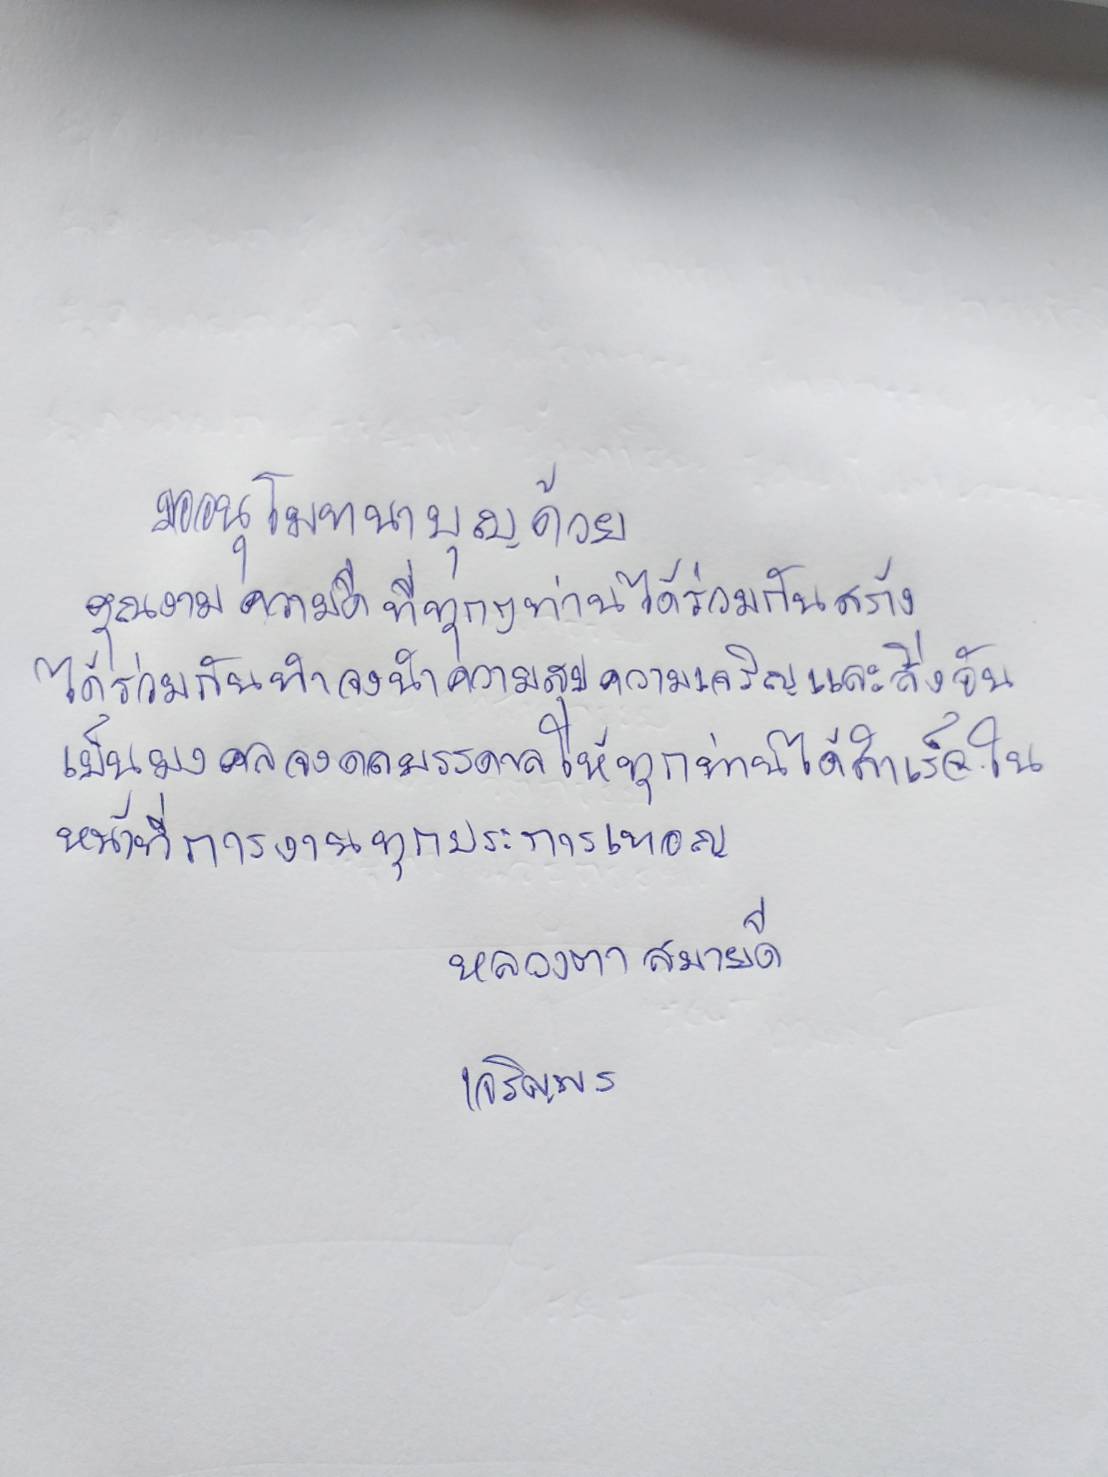 ขออนุโมทนาบุญด้วย
คุณงามความดี ที่ทุกๆท่านได้ร่วมกันสร้าง
ได้ร่วมกันทำ จงนำความสุขความเจริญและสิ่งอัน
เป็นมงคล จงดลบรรดาลให้ทุกท่านได้สำเร็จใน
หน้าที่การงานทุกประการเทอญ
หลวงตา สมายดี
เจริญพร